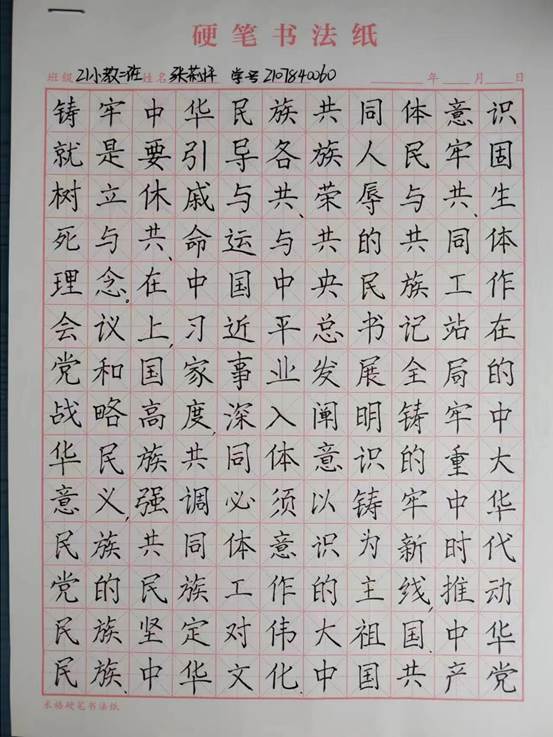 硬笔书法纸
班级 21小教二班 姓名 学号 2107840060 年 月 日
铸牢中华民族共同体意识
就是要引导各族人民牢固
树立休戚与共、荣辱与共、生
死与共、命运与共的共同体
理念。在中国中央民族工作
会议上,习近平总书记站在
党和国家事业发展全局的
战略高度,深入阐明铸牢中
华民族共同体意识的重大
意义,强调必须以铸牢中华
民族共同体意识为新时代
党的民族工作的主线,推动
民族坚定对伟大祖国.中华
民族.中华文化.中国共产党
米格硬笔书法纸